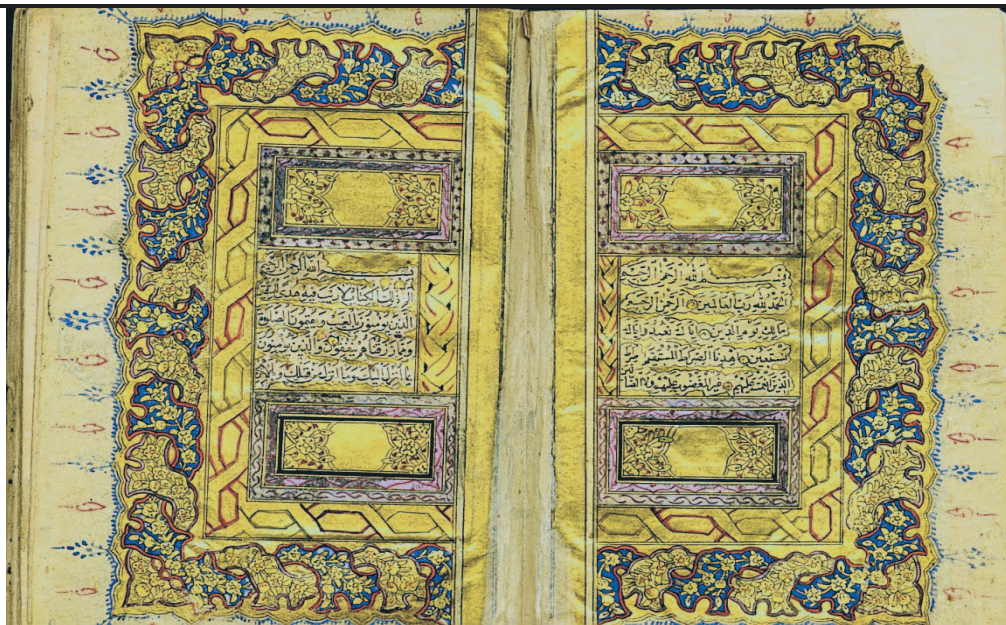 بسم الله الرحمن الرحيم
الحمد لله رب العالمين الرحمن الرحيم
مالك يوم الدين اياك نعبد واياك
نستعين اهدنا الصراط المستقيم صراط
الذين انعمت عليهم غير المغضوب عليهم ولا الضالين
بسم الله الرحمن الرحيم
الم ذلك الكتاب لا ريب فيه هدى للمتقين
الذين يؤمنون بالغيب ويقيمون الصلوة
ومما رزقناهم ينفقون والذين يؤمنون
بما انزل اليك وما انزل من قبلك